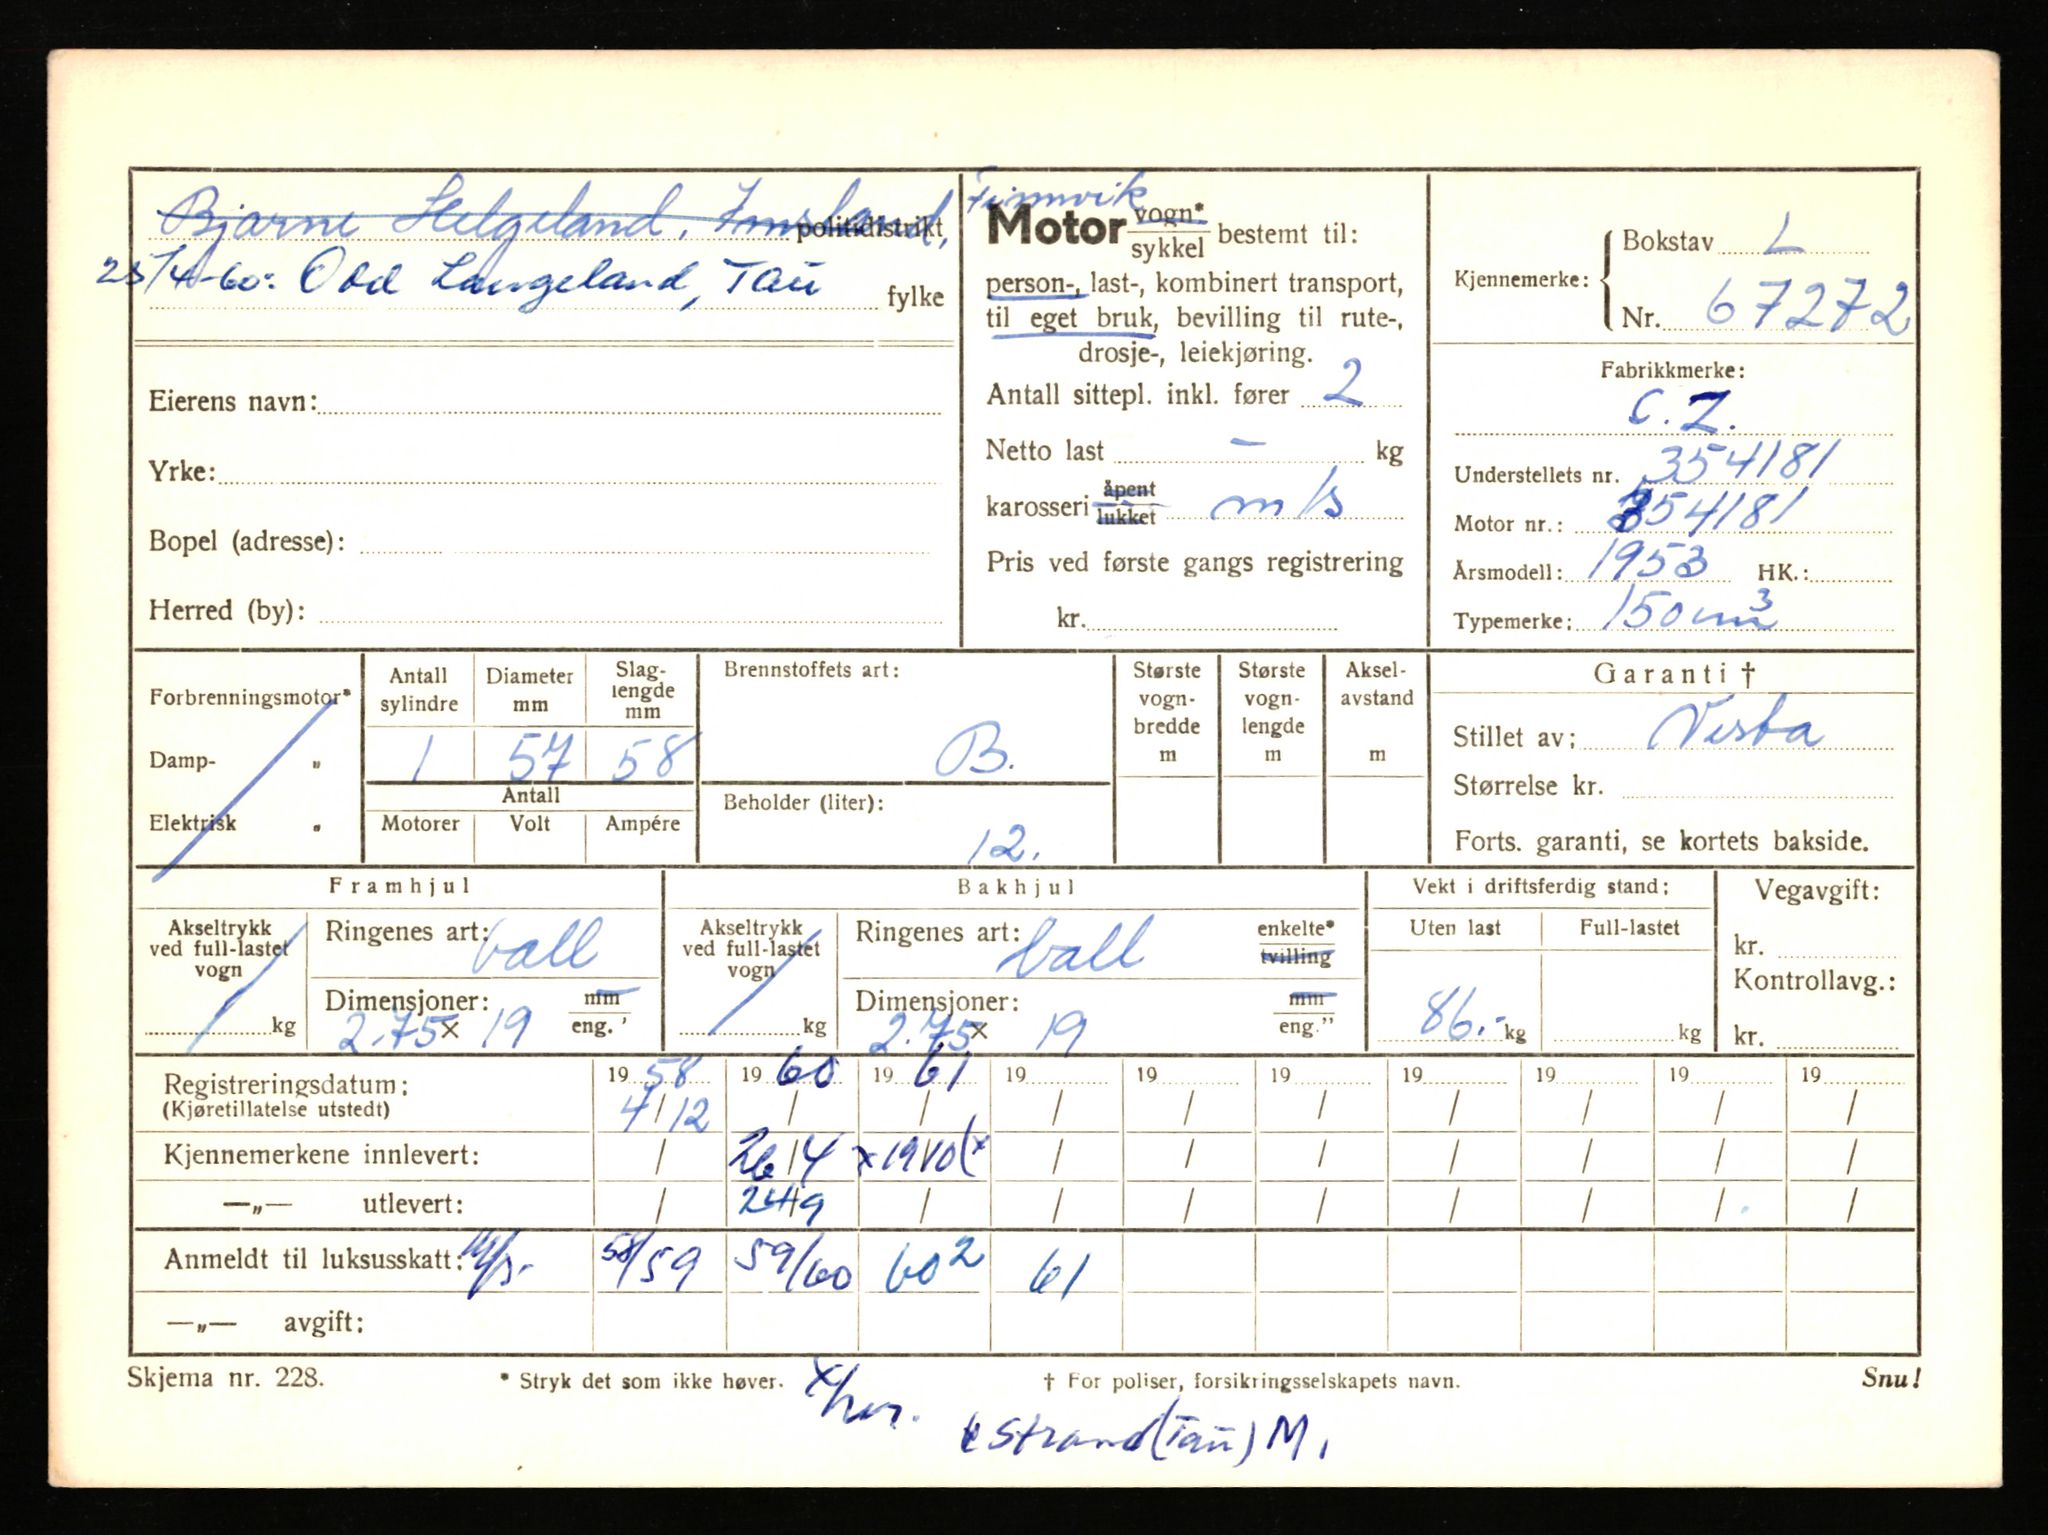 Bjarne Helgeland, Imsland, Finnvik
politidistrikt
25/4-60: Odd Langeland, Tau fylke
Eierens navn:
Yrke:
Bopel (adresse):
Herred (by):
Motor vogn* sykkel bestemt til:
person-, last-, kombinert transport,
til eget bruk, bevilling til rute-,
drosje-, leiekjøring.
Antall sittepl. inkl. fører 2
Netto last – kg
karosseri åpent lukket m/s
Pris ved første gangs registrering
kr.
Kjennemerke: Bokstav L
Nr. 67272
Fabrikkmerke:
C.Z.
Understellets nr. 354181
Motor nr.: 354181
Årsmodell: 1953 HK.:
Typemerke: 150 cm3
Forbrenningsmotor*
Damp- „
Elektrisk „
Antall sylindre Diameter mm Slag-lengde mm
1 57 58
Antall
Motorer Volt Ampére
Brennstoffets art:
B.
Beholder (liter):
12.
Største vogn-bredde m
Største vogn-lengde m
Aksel-avstand m
Garanti †
Stillet av; Vesta
Størrelse kr.
Forts. garanti, se kortets bakside.
Framhjul
Akseltrykk ved full-lastet vogn kg
Ringenes art: ball
Dimensjoner: mm eng.'
2.75 x 19
Bakhjul
Akseltrykk ved full-lastet vogn kg
Ringenes art: ball enkelte* tvilling
Dimensjoner: mm eng."
2.75 x 19
Vekt i driftsferdig stand;
Uten last Full-lastet
86.- kg kg
Vegavgift:
kr.
Kontrollavg.:
kr.
Registreringsdatum; 1958 1960 1961 19 19 19 19 19 19 19
(Kjøretillatelse utstedt) 4/12 / / / / / / / / /
Kjennemerkene innlevert: / 26/4 x 19/10 (x / / / / / / /
—„— utlevert: / 24/9 / / / / / / / /
Anmeldt til luksusskatt: 58/59 59/60 60 2 61
—„— avgift;
Skjema nr. 228. * Stryk det som ikke høver. † For poliser, forsikringsselskapets navn. Snu!
Strand (Tau) M.